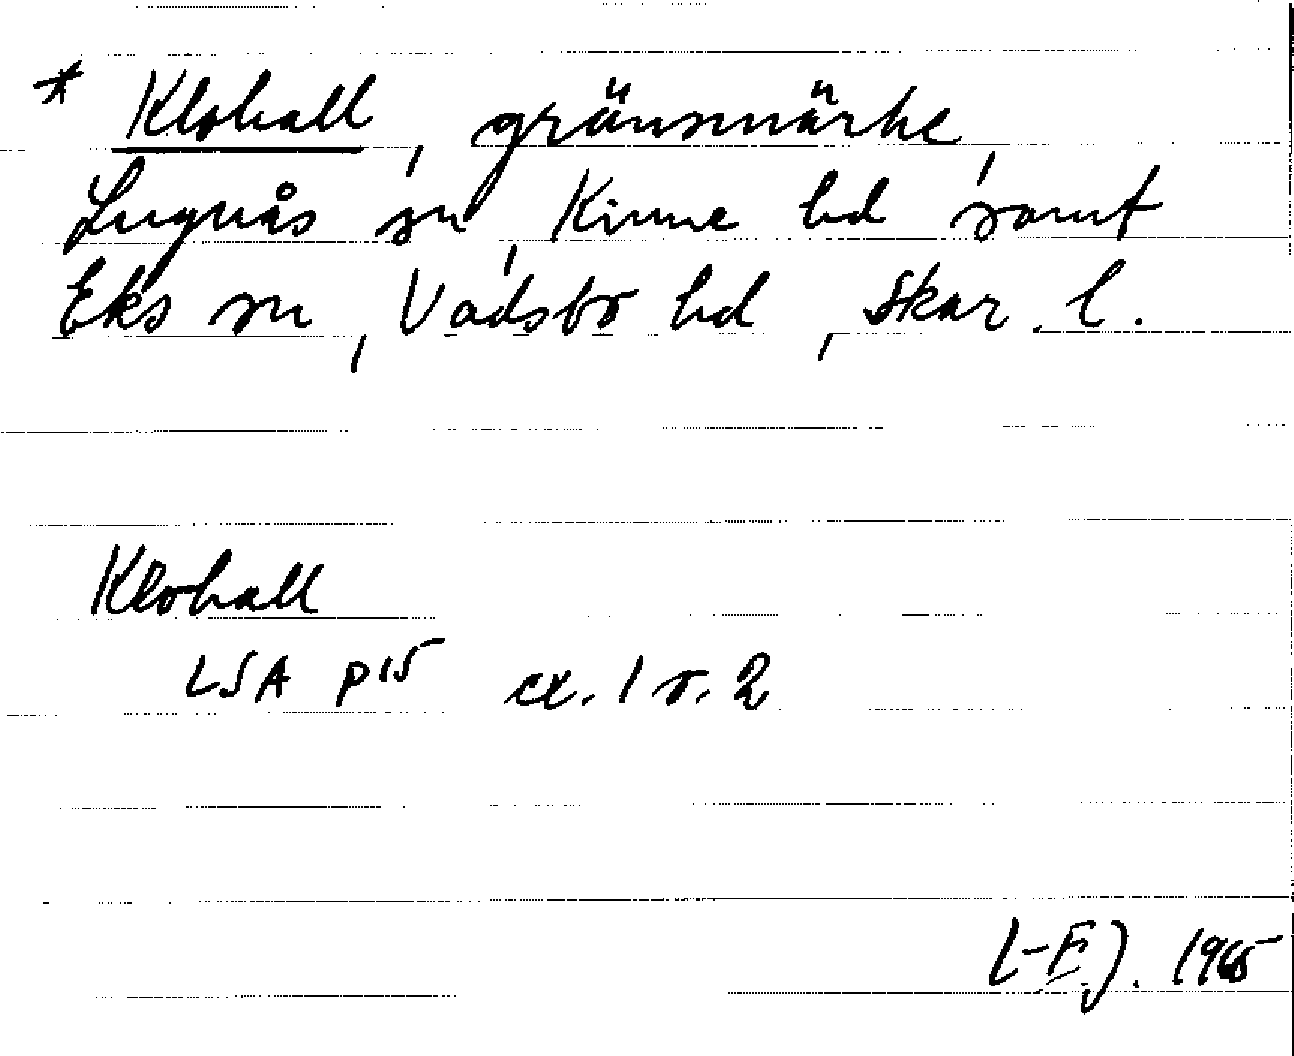 * Klohall, gränsmärke,
Lugnås sn, Kinne hd samt
Eks sn, Vadsbo hd, Skar. l.
Klohall
LSA P15 ex. 1 o. 2
L-E J. 1965